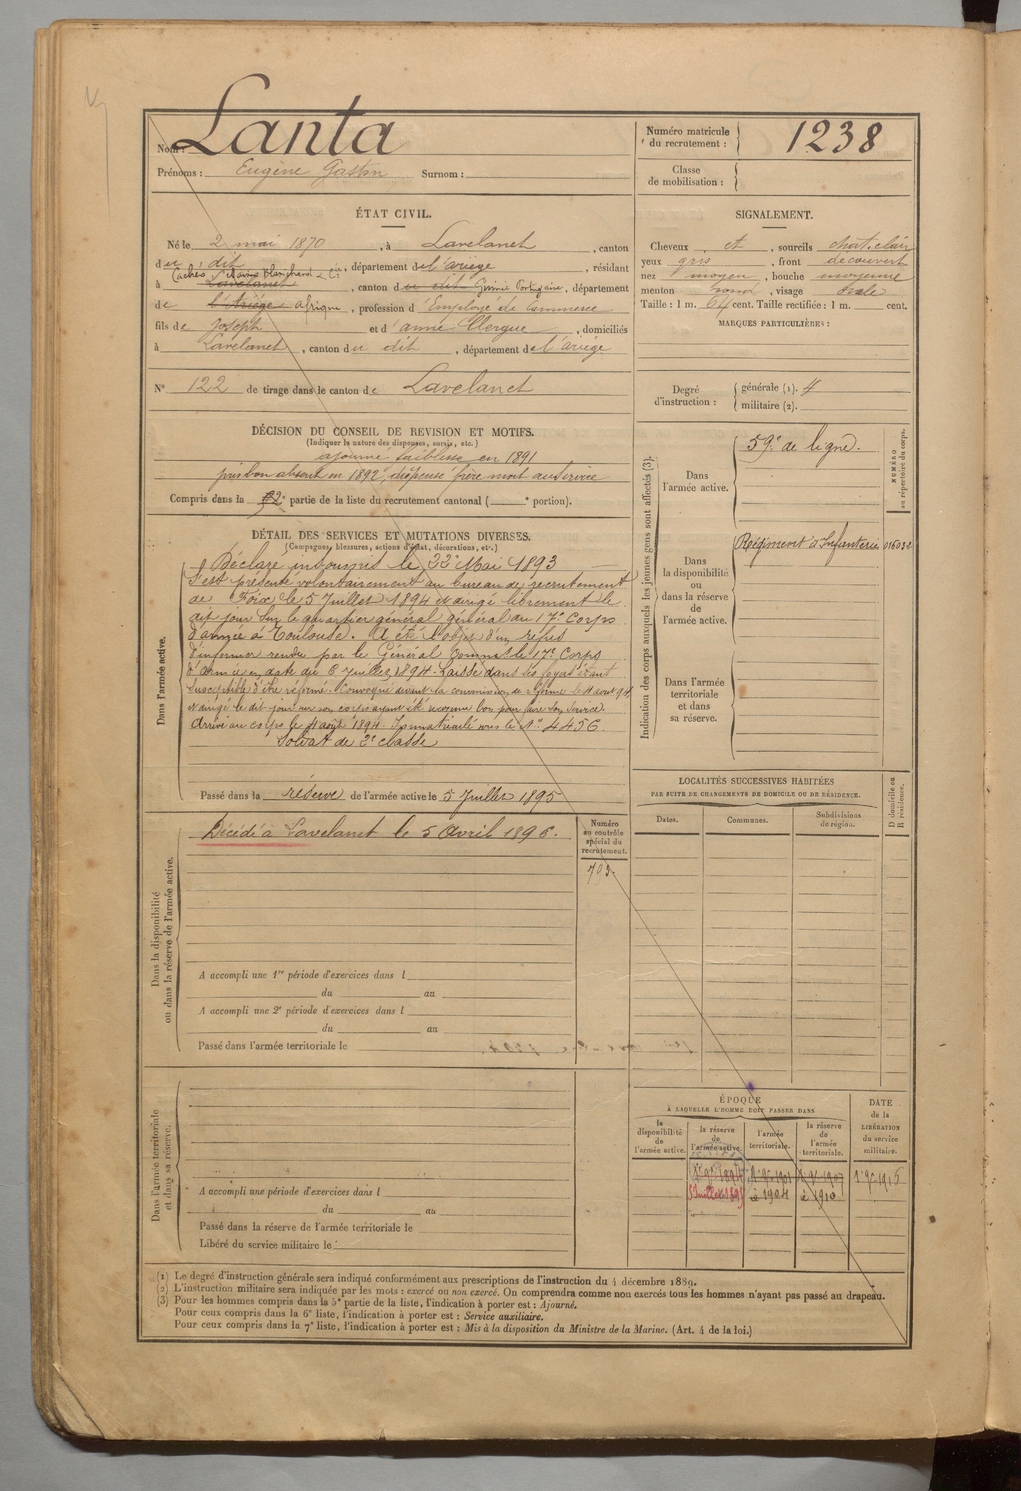 Nom : Lanta
Prénoms : Eugène Gaston Surnom :
Numéro matricule du recrutement : 1238
Classe de mobilisation :
ÉTAT CIVIL.
Né le 2 mai 1870, à Lavelanet, canton
du dit, département de l'ariège, résidant
Lavelanet, canton du dit Guinée Portugaise, département
de l'Ariège afrique, profession d'Employé de Commerce
fils de Joseph et d'anne Clergue, domiciliés
à Lavelanet, canton du dit, département de l'ariège
N° 122 de tirage dans le canton de Lavelanet
SIGNALEMENT.
Cheveux et, sourcils chat. clair
yeux gris, front découvert
nez moyen, bouche moyenne
menton rond, visage ovale
Taille : 1 m. 64 cent. Taille rectifiée : 1 m. cent.
MARQUES PARTICULIÈRES :
Degré d'instruction : générale (1). 4
militaire (2).
DÉCISION DU CONSEIL DE REVISION ET MOTIFS.
(Indiquer la nature des dispenses, sursis, etc.)
ajourné faiblesse en 1891
pris bon absent en 1892, dispensé frère mort au service
Compris dans la 2e partie de la liste du recrutement cantonal ( e portion).
DÉTAIL DES SERVICES ET MUTATIONS DIVERSES.
(Campagnes, blessures, actions d'éclat, décorations, etc.)
Dans l'armée active.
Déclaré insoumis le 22 Mai 1893
S'est présenté volontairement au bureau de recrutement
de Foix, le 5 Juillet 1894 et dirigé librement le
dit jour sur le quartier général général du 17e Corps
d'armée à Toulouse. A été l'objet d'un refus
d'informer rendu par le Général Commt le 17e Corps
d'armée en date du 6 Juillet 1894. Laissé dans ses foyers étant
susceptible d'être réformé. Convoqué devant la commission de réforme le 4 aout 94
et dirigé le dit jour sur son corps ayant été reconnu bon pour faire son service.
Arrivé au corps le 4 août 1894. Immatriculé sous le N° 4456.
Soldat de 2e classe
Passé dans la réserve de l'armée active le 5 Juillet 1895
Indication des corps auxquels les jeunes gens sont affectés (3).
Dans l'armée active. 59e de ligne.
NUMÉRO au répertoire du corps.
Dans la disponibilité ou dans la réserve de l'armée active. Régiment d'Infanterie
Dans l'armée territoriale et dans sa réserve.
LOCALITÉS SUCCESSIVES HABITÉES
PAR SUITE DE CHANGEMENTS DE DOMICILE OU DE RÉSIDENCE.
Dates. Communes. Subdivisions de région. D domicile ou R résidence.
Dans la disponibilité ou dans la réserve de l'armée active.
Décédé à Lavelanet le 5 Avril 1896.
Numéro au contrôle spécial du recrutement.
A accompli une 1re période d'exercices dans l
du au
A accompli une 2e période d'exercices dans l
du au
Passé dans l'armée territoriale le
Dans l'armée territoriale et dans sa réserve.
A accompli une période d'exercices dans l
du au
Passé dans la réserve de l'armée territoriale le
Libéré du service militaire le
ÉPOQUE
À LAQUELLE L'HOMME DOIT PASSER DANS
la disponibilité de l'armée active.
la réserve de l'armée active.
l'armée territoriale.
la réserve de l'armée territoriale.
DATE de la LIBÉRATION du service militaire.
5 Juillet 1895
(1) Le degré d'instruction générale sera indiqué conformément aux prescriptions de l'instruction du 4 décembre 1889.
(2) L'instruction militaire sera indiquée par les mots : exercé ou non exercé. On comprendra comme non exercés tous les hommes n'ayant pas passé au drapeau.
(3) Pour les hommes compris dans la 5e partie de la liste, l'indication à porter est : Ajourné.
Pour ceux compris dans la 6e liste, l'indication à porter est : Service auxiliaire.
Pour ceux compris dans la 7e liste, l'indication à porter est : Mis à la disposition du Ministre de la Marine. (Art. 4 de la loi.)